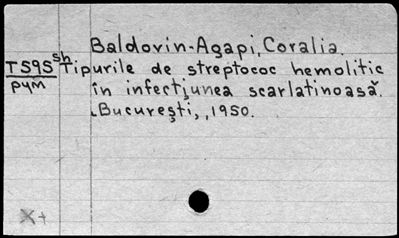 Baldovin-Agapi, Coralia.
T595sh Tipurile de streptococ hemolitic
pym în infecţiunea scarlatinoasă.
Bucureşti, 1950.
X+